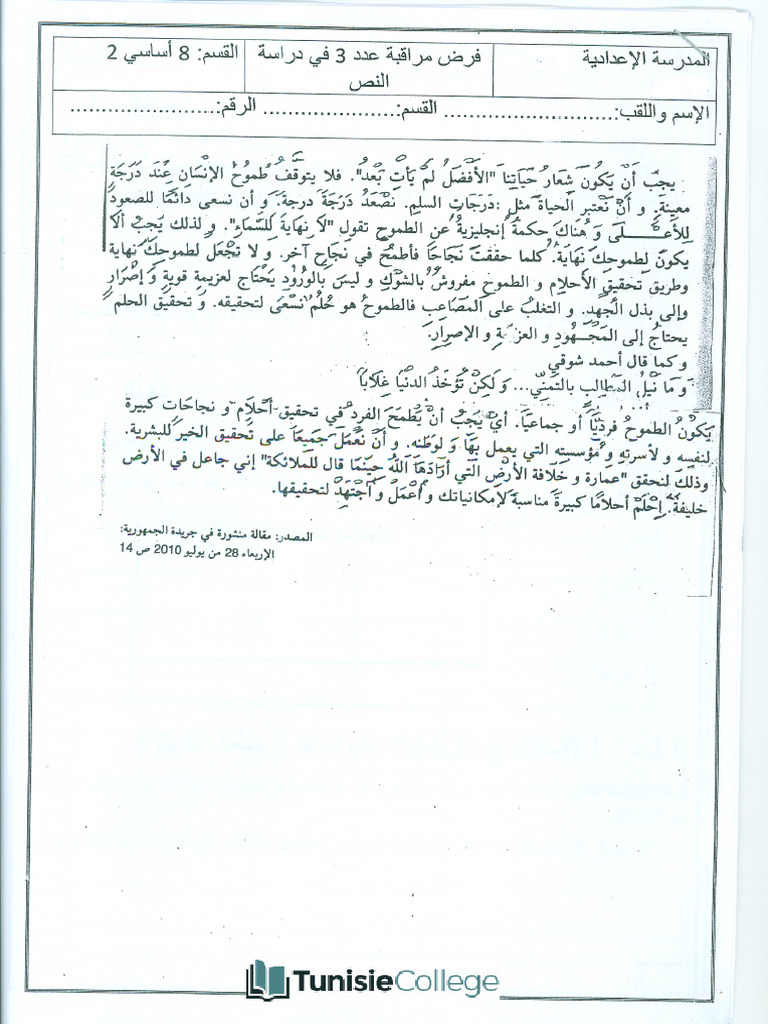 المدرسة الإعدادية
فرض مراقبة عدد 3 في دراسة النص
القسم: 8 أساسي 2
الإسم واللقب:............................ القسم:..................... الرقم:.......................
يجبُ أَنْ يَكُونَ شِعَارُ حَيَاتِنَا "الأَفْضَلُ لَمْ يَأْتِ بَعْدُ". فلا يتوقَّفُ طُموحُ الإنْسَانِ عِنْدَ دَرَجَةٍ
معينةٍ. و أنْ نَعْتبِرَ الحياةَ مثل :دَرَجَاتِ السلمِ. نصْعَدُ دَرَجَةً درجةً. و أن نسعى دائمًا للصعودِ
للأعْـــلَى وَ هُنَاكَ حكمةٌ إنجليزيةٌ عن الطموحِ تقول "لا نهايةَ للسَّمَاءِ". و لذلك يَجبُ ألا
يكونَ لِطموحِكَ نهَايَةٌ. كلما حققتَ نَجَاحًا فأطْمحْ في نَجَاحٍ آخر. و لا تجْعَلْ لطموحِكَ نهاية
وطريق تحقيقِ الأحلام و الطموحِ مفروشٌ بالشوْكِ و ليسَ بالورُودِ يَحْتَاج لعزيمةٍ قويةٍ وَ إِصْرَارٍ
وإلى بذل الْجُهدِ. و التغلبُ على المَصَاعِبِ فالطموحُ هو حُلُمٌ نَسْعَى لتحقيقه. وَ تحقيق الحلم
يحتاجُ إلى المَجْـهُودِ و العزيمةِ و الإصرارِ.
و كما قال أحمد شوقي
وَ مَا نَيْلُ المَطَالِبِ بالتَمَنِّي... وَ لَكِنْ تُؤْخَذُ الدنْيَا غِلَابًا
يَكُونُ الطموحُ فرديًّا أو جماعيًا. أيْ يَجُبُ أنْ يَطْمَحَ الفردُ في تحقيقِ أَحْلَامٍ و نجاحَاتٍ كبيرة
لنفسِهِ و لأسرتِهِ و مُؤسستِهِ التي يعمل بِهَا وَ لوطنِه. و أنْ نَعْمَلَ جَميعًا على تحقيق الخيرَ للبشرية.
وذلكَ لنحققَ "عمَارة و خلَافَة الأرْضِ التي أَرَادَهَا اللَّهُ حِينَمَا قال للملائكة" إني جاعل في الأرض
خليفةً. اِحْلَمْ أحلامًا كبيرةً مناسبةً لإمكانياتكَ و اعْمَلْ و اجْتَهِدْ لتحقيقها.
المصدر: مقالة منشورة في جريدة الجمهورية:
الإربعاء 28 من يوليو 2010 ص 14
TunisieCollege